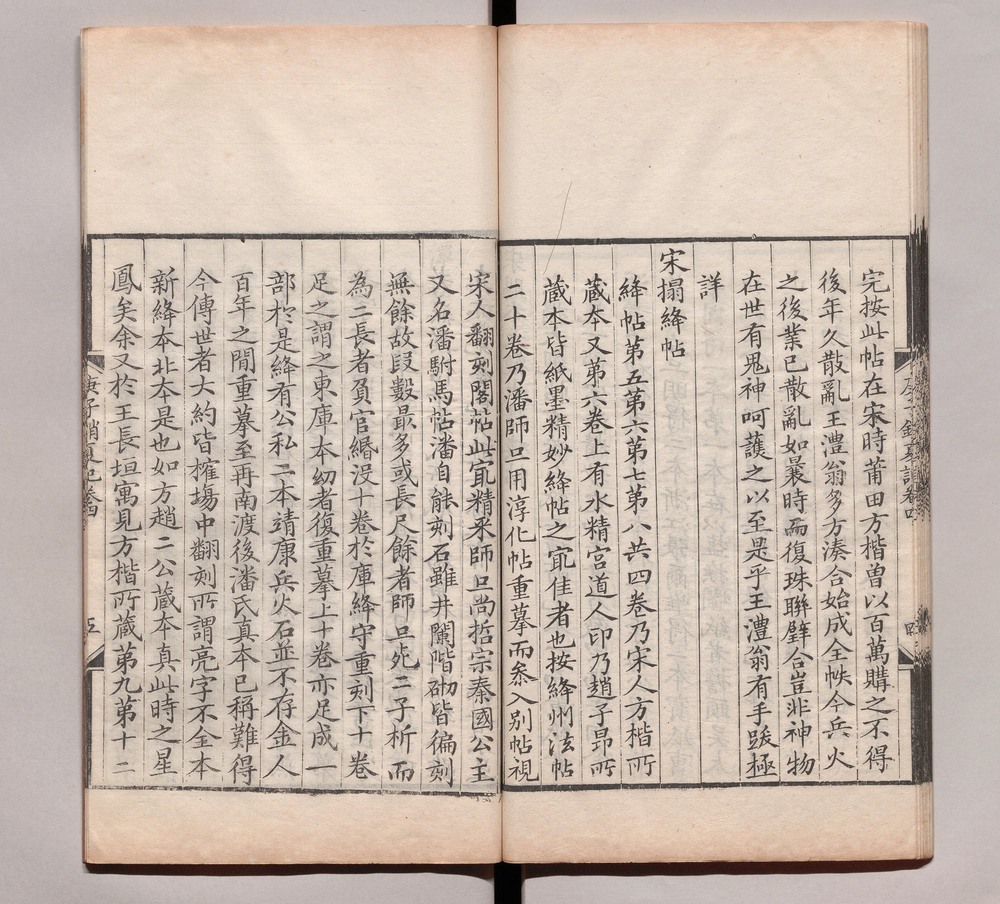 完按此帖在宋時莆田方楷曽以百萬購之不得
後年久散亂王澧翁多方湊合始成全帙今兵火
之後業已散亂如曩時而復珠聯璧合豈非神物
在世有鬼神呵護之以至是乎王澧翁有手跋極
詳
宋搨絳帖
絳帖第五第六第七第八共四卷乃宋人方楷所
藏夲又第六卷上有水精宮道人印乃趙子昂所
蔵本皆紙墨精妙絳帖之㝡佳者也按絳州法帖
二十卷乃潘師旦用淳化帖重摹而叅入別帖視
宋人翻刻閣帖此㝡精釆師旦尚哲宗秦國公主
又名潘駙馬帖潘自能刻石雖井闌階砌皆徧刻
無餘故叚數最多或長尺餘者師旦死二子析而
為二長者負官緡没十卷於庫絳守重刻下十卷
足之謂之東庫本㓜者復重摹上十卷亦足成一
部於是絳有公私二本靖康兵火石並不存金人
百年之間重摹至再南渡後潘氏真本已稱難得
今傳世者大約皆榷場中翻刻所謂亮字不全本
新絳本北本是也如方趙二公蔵本真此時之星
鳳矣余又於王長垣寓見方楷所蔵第九第十二
庚子銷夏記卷四
五